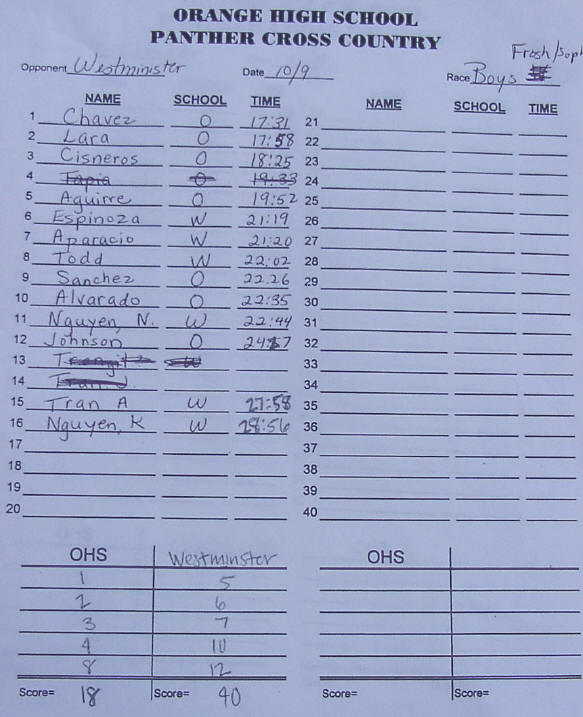 ORANGE HIGH SCHOOL
PANTHER CROSS COUNTRY
Frosh/Soph
Opponent Westminister Date 10/9 Race Boys
NAME SCHOOL TIME NAME SCHOOL TIME
1 Chavez O 17:31 21
2 Lara O 17:58 22
3 Cisneros O 18:25 23
4 Tapia O 19:33 24
5 Aguirre O 19:52 25
6 Espinoza W 21:19 26
7 Aparacio W 21:20 27
8 Todd W 22:02 28
9 Sanchez O 22:26 29
10 Alvarado O 22:35 30
11 Nguyen, N. W 22:44 31
12 Johnson O 32
13 W 33
14 Tran 34
15 Tran A W 27:58 35
16 Nguyen, K W 28:56 36
17 37
18 38
19 39
20 40
OHS Westminster OHS
1 5
2 6
3 7
4 10
8 12
Score= 18 Score= 40 Score= Score=